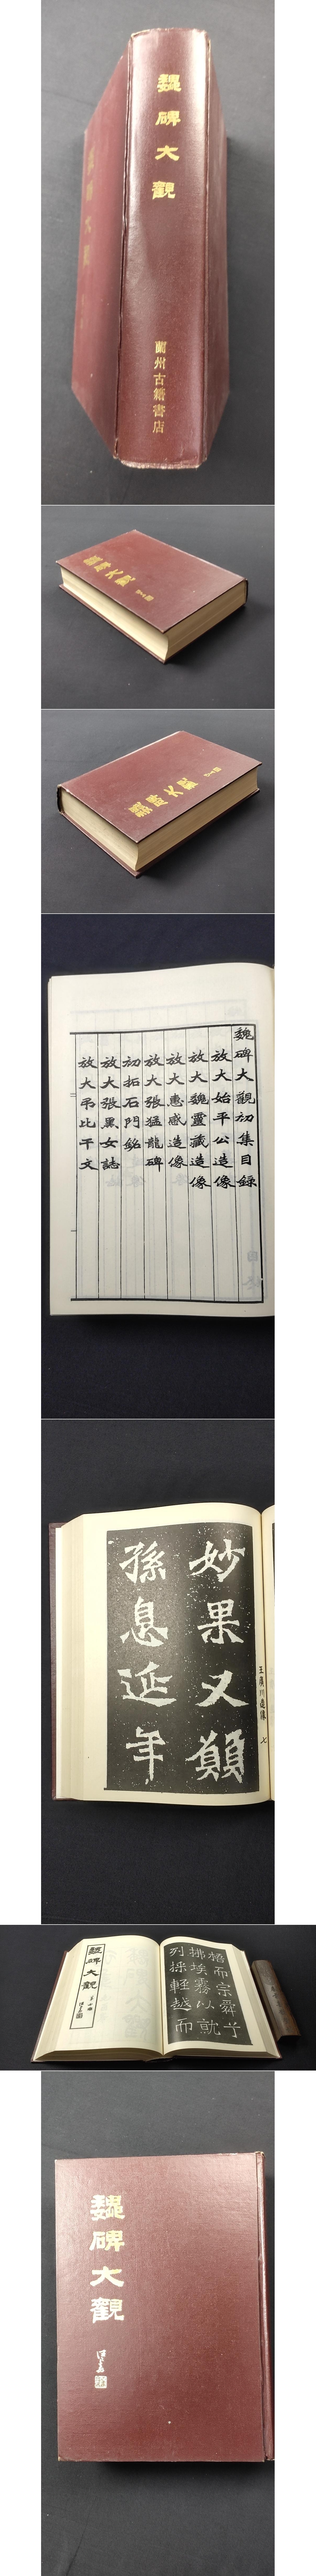 魏碑大觀
蘭州古籍書店
魏碑大觀
魏碑大觀
魏碑大觀初集目錄
放大始平公造像
放大魏靈藏造像
放大惠感造像
放大張猛龍碑
初拓石門銘
放大張黑女誌
放大弔比干文
妙果又願
孫息延年
王廣川造像 七
魏碑大觀
而宗舜乎
拂埃霧以就
列採輕越而
魏碑大觀